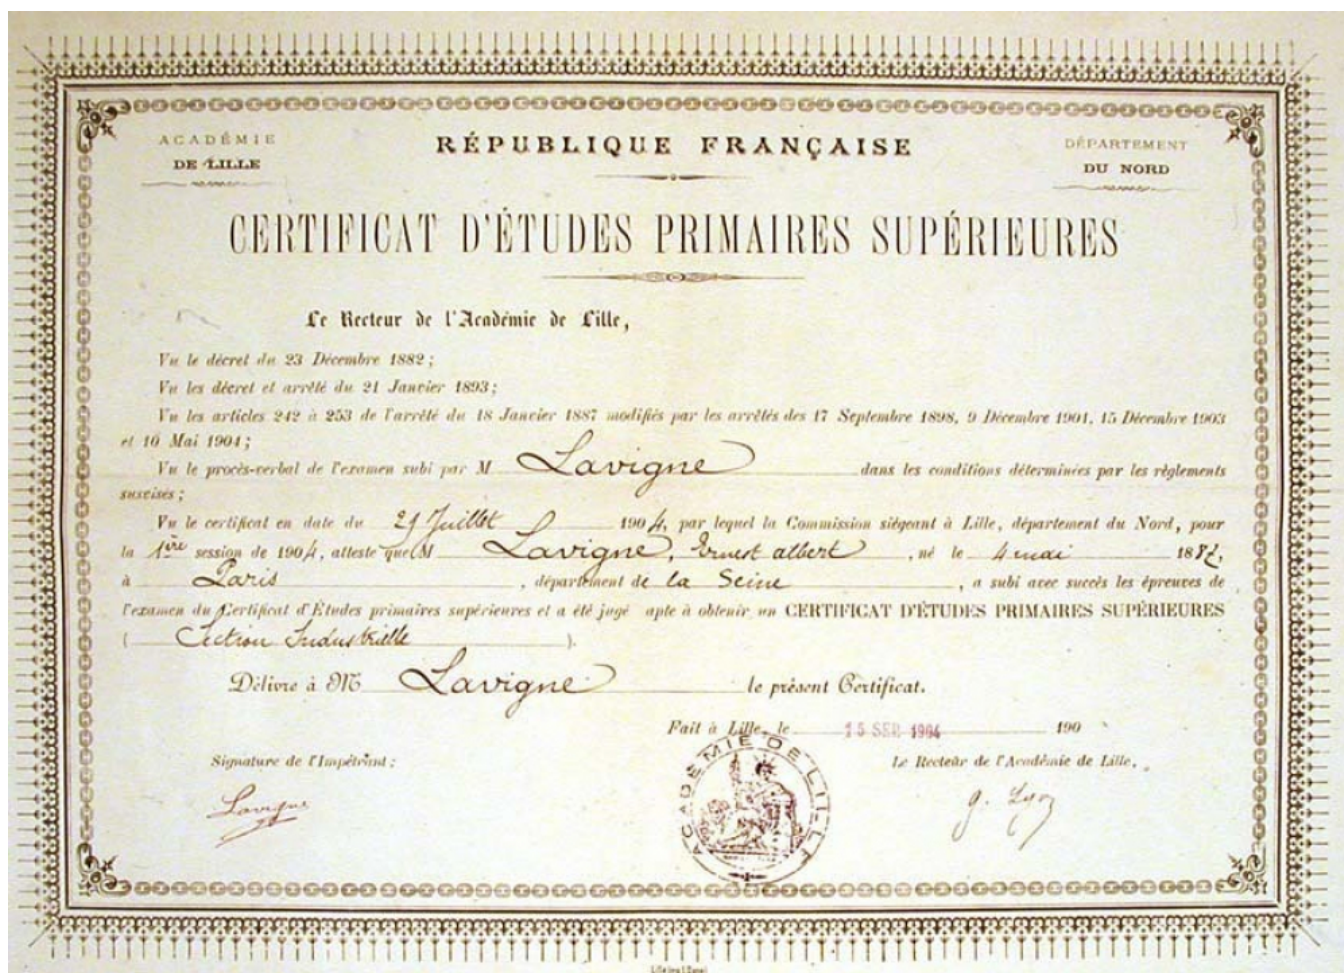 ACADÉMIE
DE LILLE
RÉPUBLIQUE FRANÇAISE
DÉPARTEMENT
DU NORD
CERTIFICAT D'ÉTUDES PRIMAIRES SUPÉRIEURES
Le Recteur de l'Académie de Lille,
Vu le décret du 23 Décembre 1882 ;
Vu les décret et arrêté du 21 Janvier 1893 ;
Vu les articles 242 à 253 de l'arrêté du 18 Janvier 1887 modifiés par les arrêtés des 17 Septembre 1898, 9 Décembre 1901, 15 Décembre 1903
et 10 Mai 1904 ;
Vu le procès-verbal de l'examen subi par M Lavigne dans les conditions déterminées par les règlements
susvisés ;
Vu le certificat en date du 29 Juillet 1904, par lequel la Commission siégeant à Lille, département du Nord, pour
la 1ère session de 1904, atteste que M Lavigne, Ernest albert, né le 4 mai 188,
à Paris, département de la Seine, a subi avec succès les épreuves de
l'examen du Certificat d'Études primaires supérieures et a été jugé apte à obtenir un CERTIFICAT D'ÉTUDES PRIMAIRES SUPÉRIEURES
(Section Industrielle).
Délivré à M Lavigne le présent Certificat.
Fait à Lille, le 15 SEP 1904 190
Signature de l'Impétrant :
Le Recteur de l'Académie de Lille,
Lavigne
g. Lyon
ACADÉMIE DE LILLE